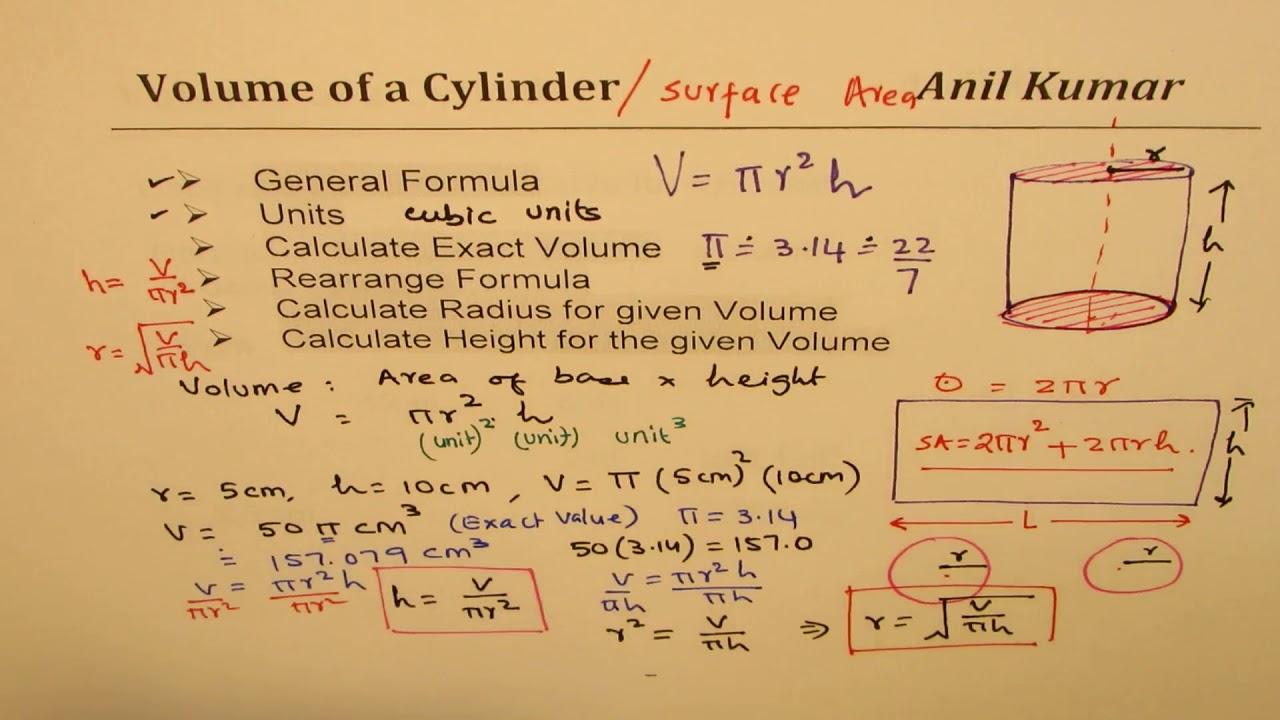 Volume of a Cylinder / surface Area Anil Kumar
✓ ➢ General Formula V = πr² h
✓ ➢ Units cubic units
➢ Calculate Exact Volume π ≐ 3.14 ≐ 22/7
h = V/πr² ➢ Rearrange Formula
➢ Calculate Radius for given Volume
r = √(V/πh) ➢ Calculate Height for the given Volume
r
h
Volume : Area of base × height
V = πr² h
(unit)² (unit) unit³
= 2πr
SA = 2πr² + 2πrh.
h
L
r r
r = 5cm, h = 10cm, V = π (5cm)² (10cm)
V = 50 π cm³ (Exact Value) π = 3.14
≐ 157.079 cm³ 50(3.14) = 157.0
V/πr² = πr² h/πr² h = V/πr² V/πh = πr² h/πh
r² = V/πh ⇒ r = √(V/πh)